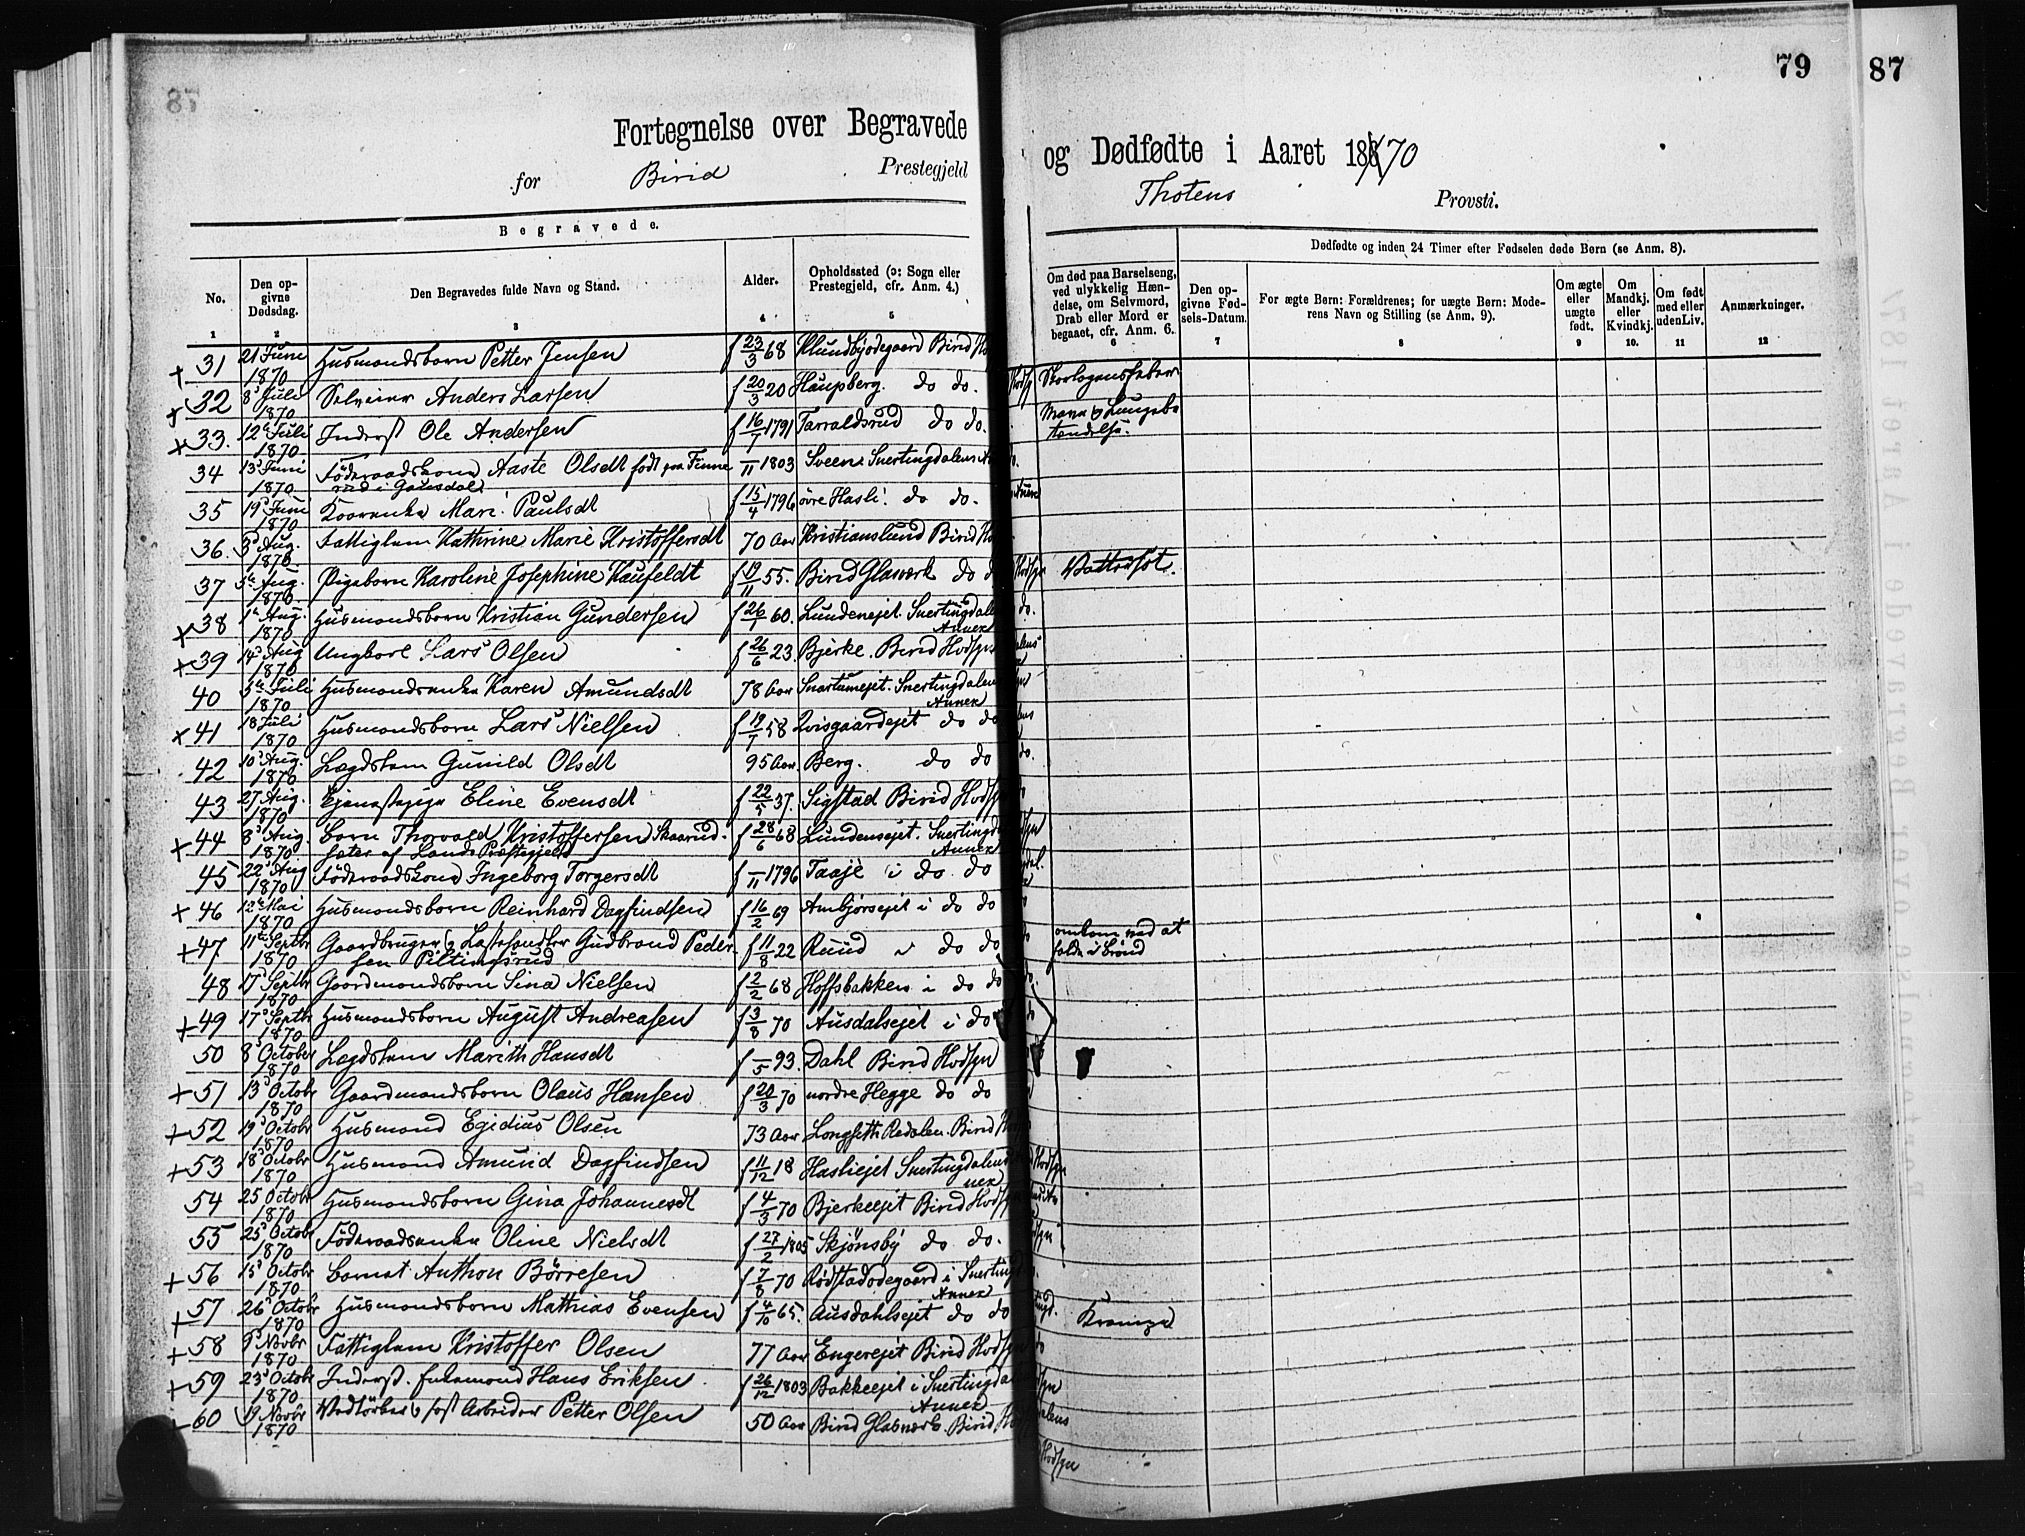 78
79
87
Fortegnelse over Begravede
og Dødfødte i Aaret 1870
for Birid Prestegjeld
Thotens Provsti.
Begravede.
Dødfødte og inden 24 Timer efter Fødselen døde Børn (se Anm. 8).
No.
Den opgivne Dødsdag.
Den Begravedes fulde Navn og Stand.
Alder.
Opholdssted (ɔ: Sogn eller Prestegjeld, cfr. Anm. 4.)
Om død paa Barselseng, ved ulykkelig Hændelse, om Selvmord, Drab eller Mord er begaaet, cfr. Anm. 6.
Den opgivne Fødsels-Datum.
For ægte Børn: Forældrenes; for uægte Børn: Moderens Navn og Stilling (se Anm. 9).
Om ægte eller uægte født.
Om Mandkj. eller Kvindkj.
Om født med eller uden Liv.
Anmærkninger.
1 2 3 4 5 6 7 8 9 10. 11 12
+ 31 21 Juni 1870 Husmandsbarn Petter Jensen f 23/3 68 Klundbyødegaard Birid
+ 32 8 Juli 1870 Selveier Anders Larsen f 20/3 20 Haupberg. do do. Skarlagensfeber
+ 33. 12te Juli 1870 Inderst Ole Andersen f 16/7 1791 Tarraldsrud do do.
34 13 Juni 1870 Föderaadskone Aaste Olsdt født paa Finnerud i Gausdal f /11 1803 Sveen Snertingdalens
35 19 Juni 1870 Kaarenke Mari Paulsdt f 15/4 1796 øvre Hasli do do.
36. 3 Aug. 1870 Fattiglem Kathrine Marie Kristoffersdt 70 Aar Kristianslund Birid
37 5te Aug. 1870 Pigebarn Karoline Josephine Kaufeldt f 19/11 55. Birid Glasværk do do Vattersot.
+ 38 1te Aug. 1870 Husmandsbarn Kristian Gundersen f 26/1 60. Lundenejet. Snertingdalens Annex
+ 39 14 Aug 1870 Ungkarl Lars Olsen f 26/6 23. Bjerke. Birid Hvdsgn
40 3te Juli 1870 Husmandsenke Karen Amundsdt 78 Aar Snartumejet. Snertingdalens Annex
+ 41 18 Juli 1870 Husmandsbarn Lars Nielsen f 19/7 58 Qvisgaardejet do do
42 10 Aug. 1870 Lægdslem Gunild Olsdt 95 Aar. Berg. do do
43 27 Aug. 1870 Tjenestepige Eline Evensdt f 22/5 37. Sigstad Birid Hvdsgn
+ 44 8 Aug. 1870 barn Thorvald Kristoffersen Skaarudsæter af Lands Præstegjeld f 28/6 68 Lundensejet. Snertingd Annex
45 22 Aug 1870 Föderaadskone Ingeborg Torgersdt f /11 1796 Taaje i do. do
+ 46 12te Mai 1870 Husmandsbarn Reinhard Dagfindsen f 16/2 69 Ambjørsejet i do do
+ 47 11te Septbr 1870 Gaardbruger og Lastehandler Gudbrand Pedersen Piltingsrud f 11/8 22 Ruud i do do omkom ved at falde i Brønd
48 17 Septbr 1870 Gaardmandsbarn Sina Nielsen f 2/2 68 Hoffsbakken i do do
+ 49 17 Septbr 1870 Husmandsbarn August Andreasen f 3/8 70 Ausdalsejet i do
50 8 October 1870 Lægdslem Marith Hansdt f /5 93. Dahl Birid Hvdsgn
+ 51 13 Octobr 1870 Gaardmandsbarn Olaus Hansen f 20/3 70 nordre Hegge do do
+ 52 19 Octobr 1870 Husmand Egidius Olsen 73 Aar Longseth Redalen. Birid
+ 53 18 Octobr 1870 Husmand Amund Dagfindsen f 11/12 18 Hasliejet Snertingdalens
54 25 Octobr 1870 Husmandsbarn Gina Johannesdt f 4/3 70 Bjerkeejet Birid Hvdsgn
55 25 Octobr 1870 Föderaadsenke Oline Nielsdt f 27/2 1805 Skjønsby do do.
+ 56 15 Octobr 1870 barnet Anthon Börresen f 7/8 70 Rødstadødegaard i Snertingd Annex
+ 57 26 Octobr 1870 Husmandsbarn Matthias Evensen f 4/10 65. Ausdahlsejet do do Krampe
+ 58 9 Novbr 1870 Fattiglem Kristoffer Olsen 77 Aar Engerejet Birid Hvdsgn
+ 59 23 Octobr 1870 Inderst. Enkemand Hans Eriksen f 26/12 1803 Bakkeejet i Snertingda Annex
60 19 Novbr 1870 fast Arbeider Petter Olsen 50 Aar Birid Glasværk. Birid